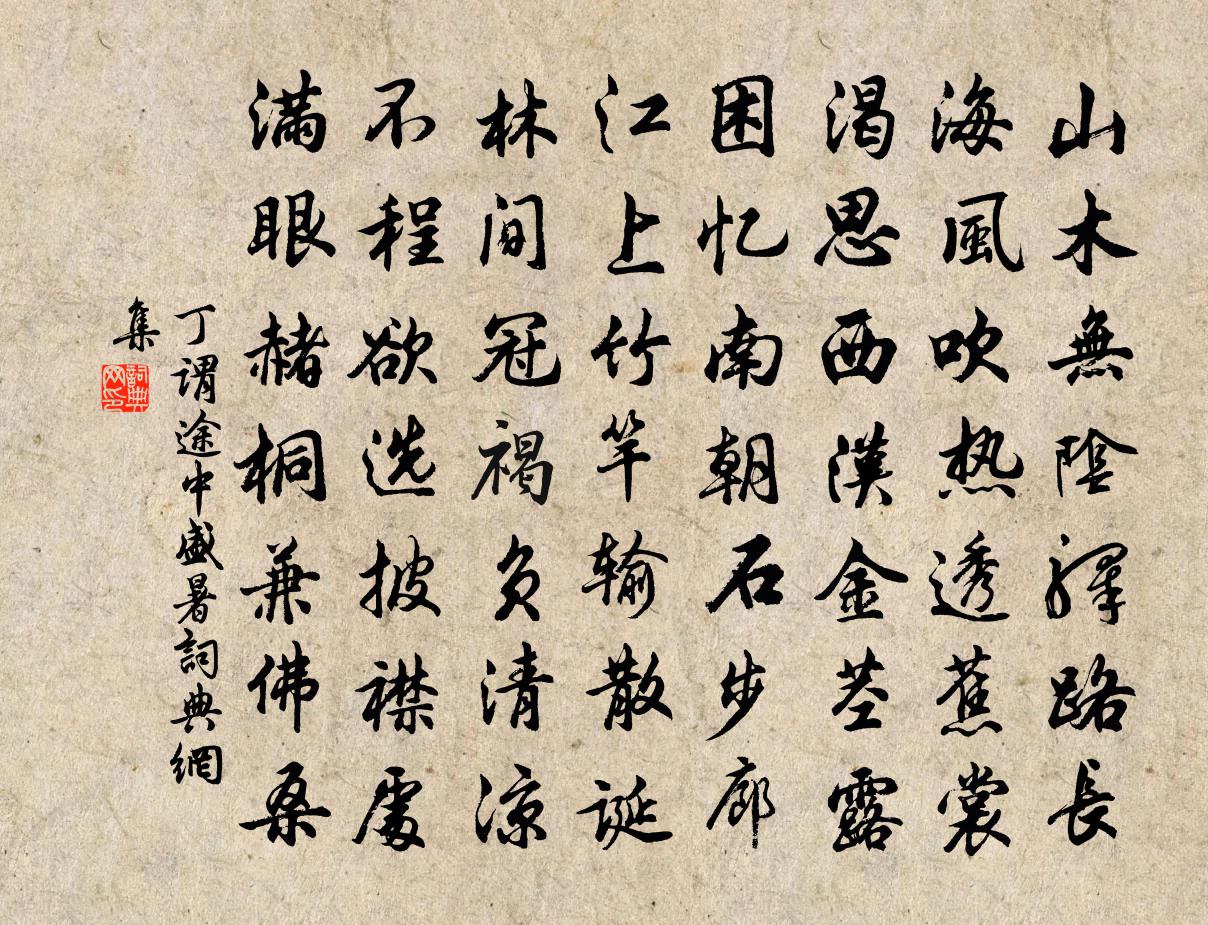 山木無陰驛路長
海風吹热透蕉裳
渴思西漢金茎露
困忆南朝石步廊
江上竹竿输散誕
林間冠褐负清涼
不程欲选披襟處
满眼赭桐兼佛桑
丁謂途中盛暑詞典網
集
詞典
网印